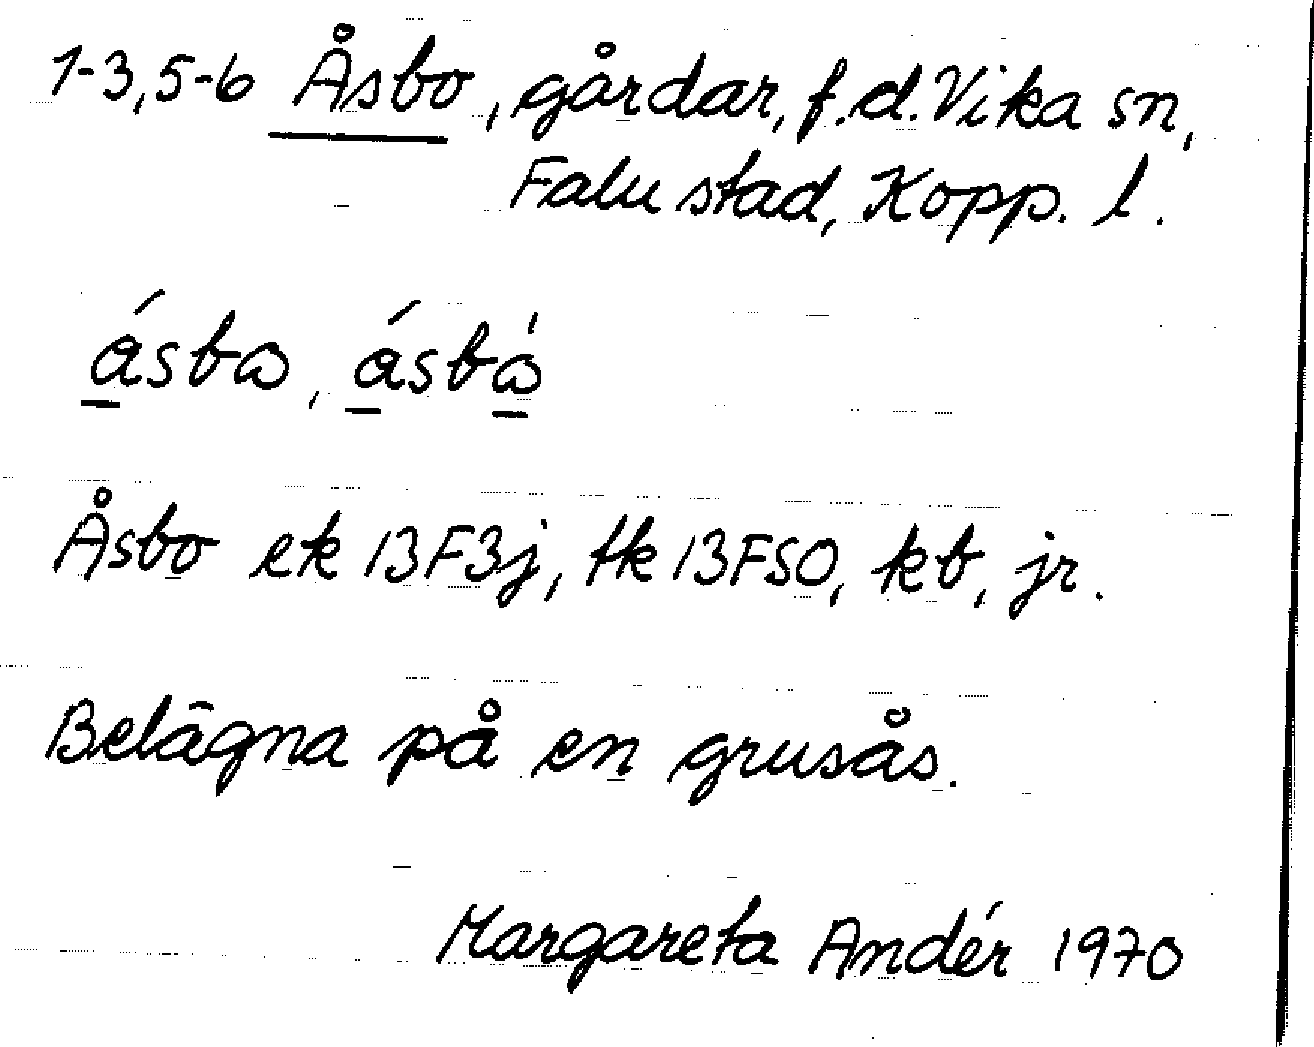 1-3,5-6 Åsbo, gårdar, f.d. Vika sn,
Falu stad, Kopp. l.
ásba, ásbá
Åsbo ek 13F3j, tk 13FSO, kb, jr.
Belägna på en grusås.
Margareta Andér 1970